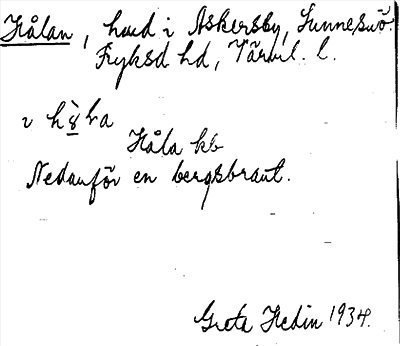 Hålan, hmd i Askersby, Sunne sn.
Fryksd hd, Värml. l.
Håla kb
Nedanför en bergsbrant.
Greta Hedin 1934.